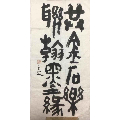 共金石樂
聯翰墨緣